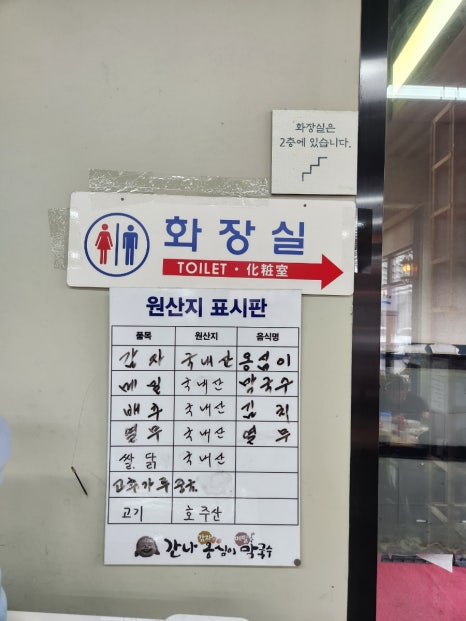 화장실은
2층에 있습니다.
화장실
TOILET · 化粧室
원산지 표시판
품목 원산지 음식명
감자 국내산 옹심이
메밀 국내산 막국수
배추 국내산 김치
열무 국내산 열무
쌀, 닭 국내산
고추가루 중국
고기 호주산
감자 메밀
간나 옹심이 막국수